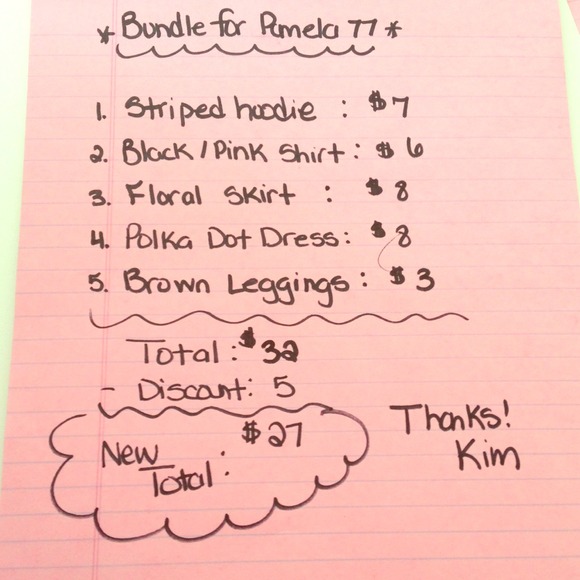 * Bundle for Pamela 77 *
1. Striped hoodie : $7
2. Black/Pink Shirt : $6
3. Floral Skirt : $8
4. Polka Dot Dress : $8
5. Brown Leggings : $3
Total : $32
- Discount : 5
New Total : $27
Thanks!
Kim